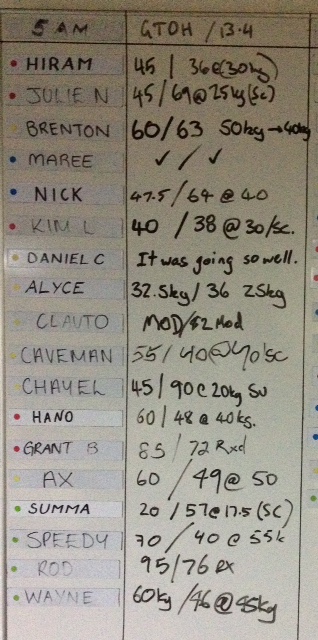 5 AM GTOH / 13.4
HIRAM 45 / 36@(30kg)
JULIE N 45/69@25kg(sc)
BRENTON 60/63 50kg→40kg
MAREE ✓ / ✓
NICK 47.5/64 @ 40
KIM L 40 / 38 @ 30/sc.
DANIEL C It was going so well.
ALYCE 32.5kg/ 36 25kg
CLAUTO MOD/ Mod
CAVEMAN 55/40@40/sc
CHAYEL 45/90@20kg
HANO 60/48 @ 40kg.
GRANT B 85/72 Rxd
AX 60 / 49@ 50
SUMMA 20/57@17.5(SC)
SPEEDY 70/40@55k
ROD 95/76 RX
WAYNE 60kg/46@45kg